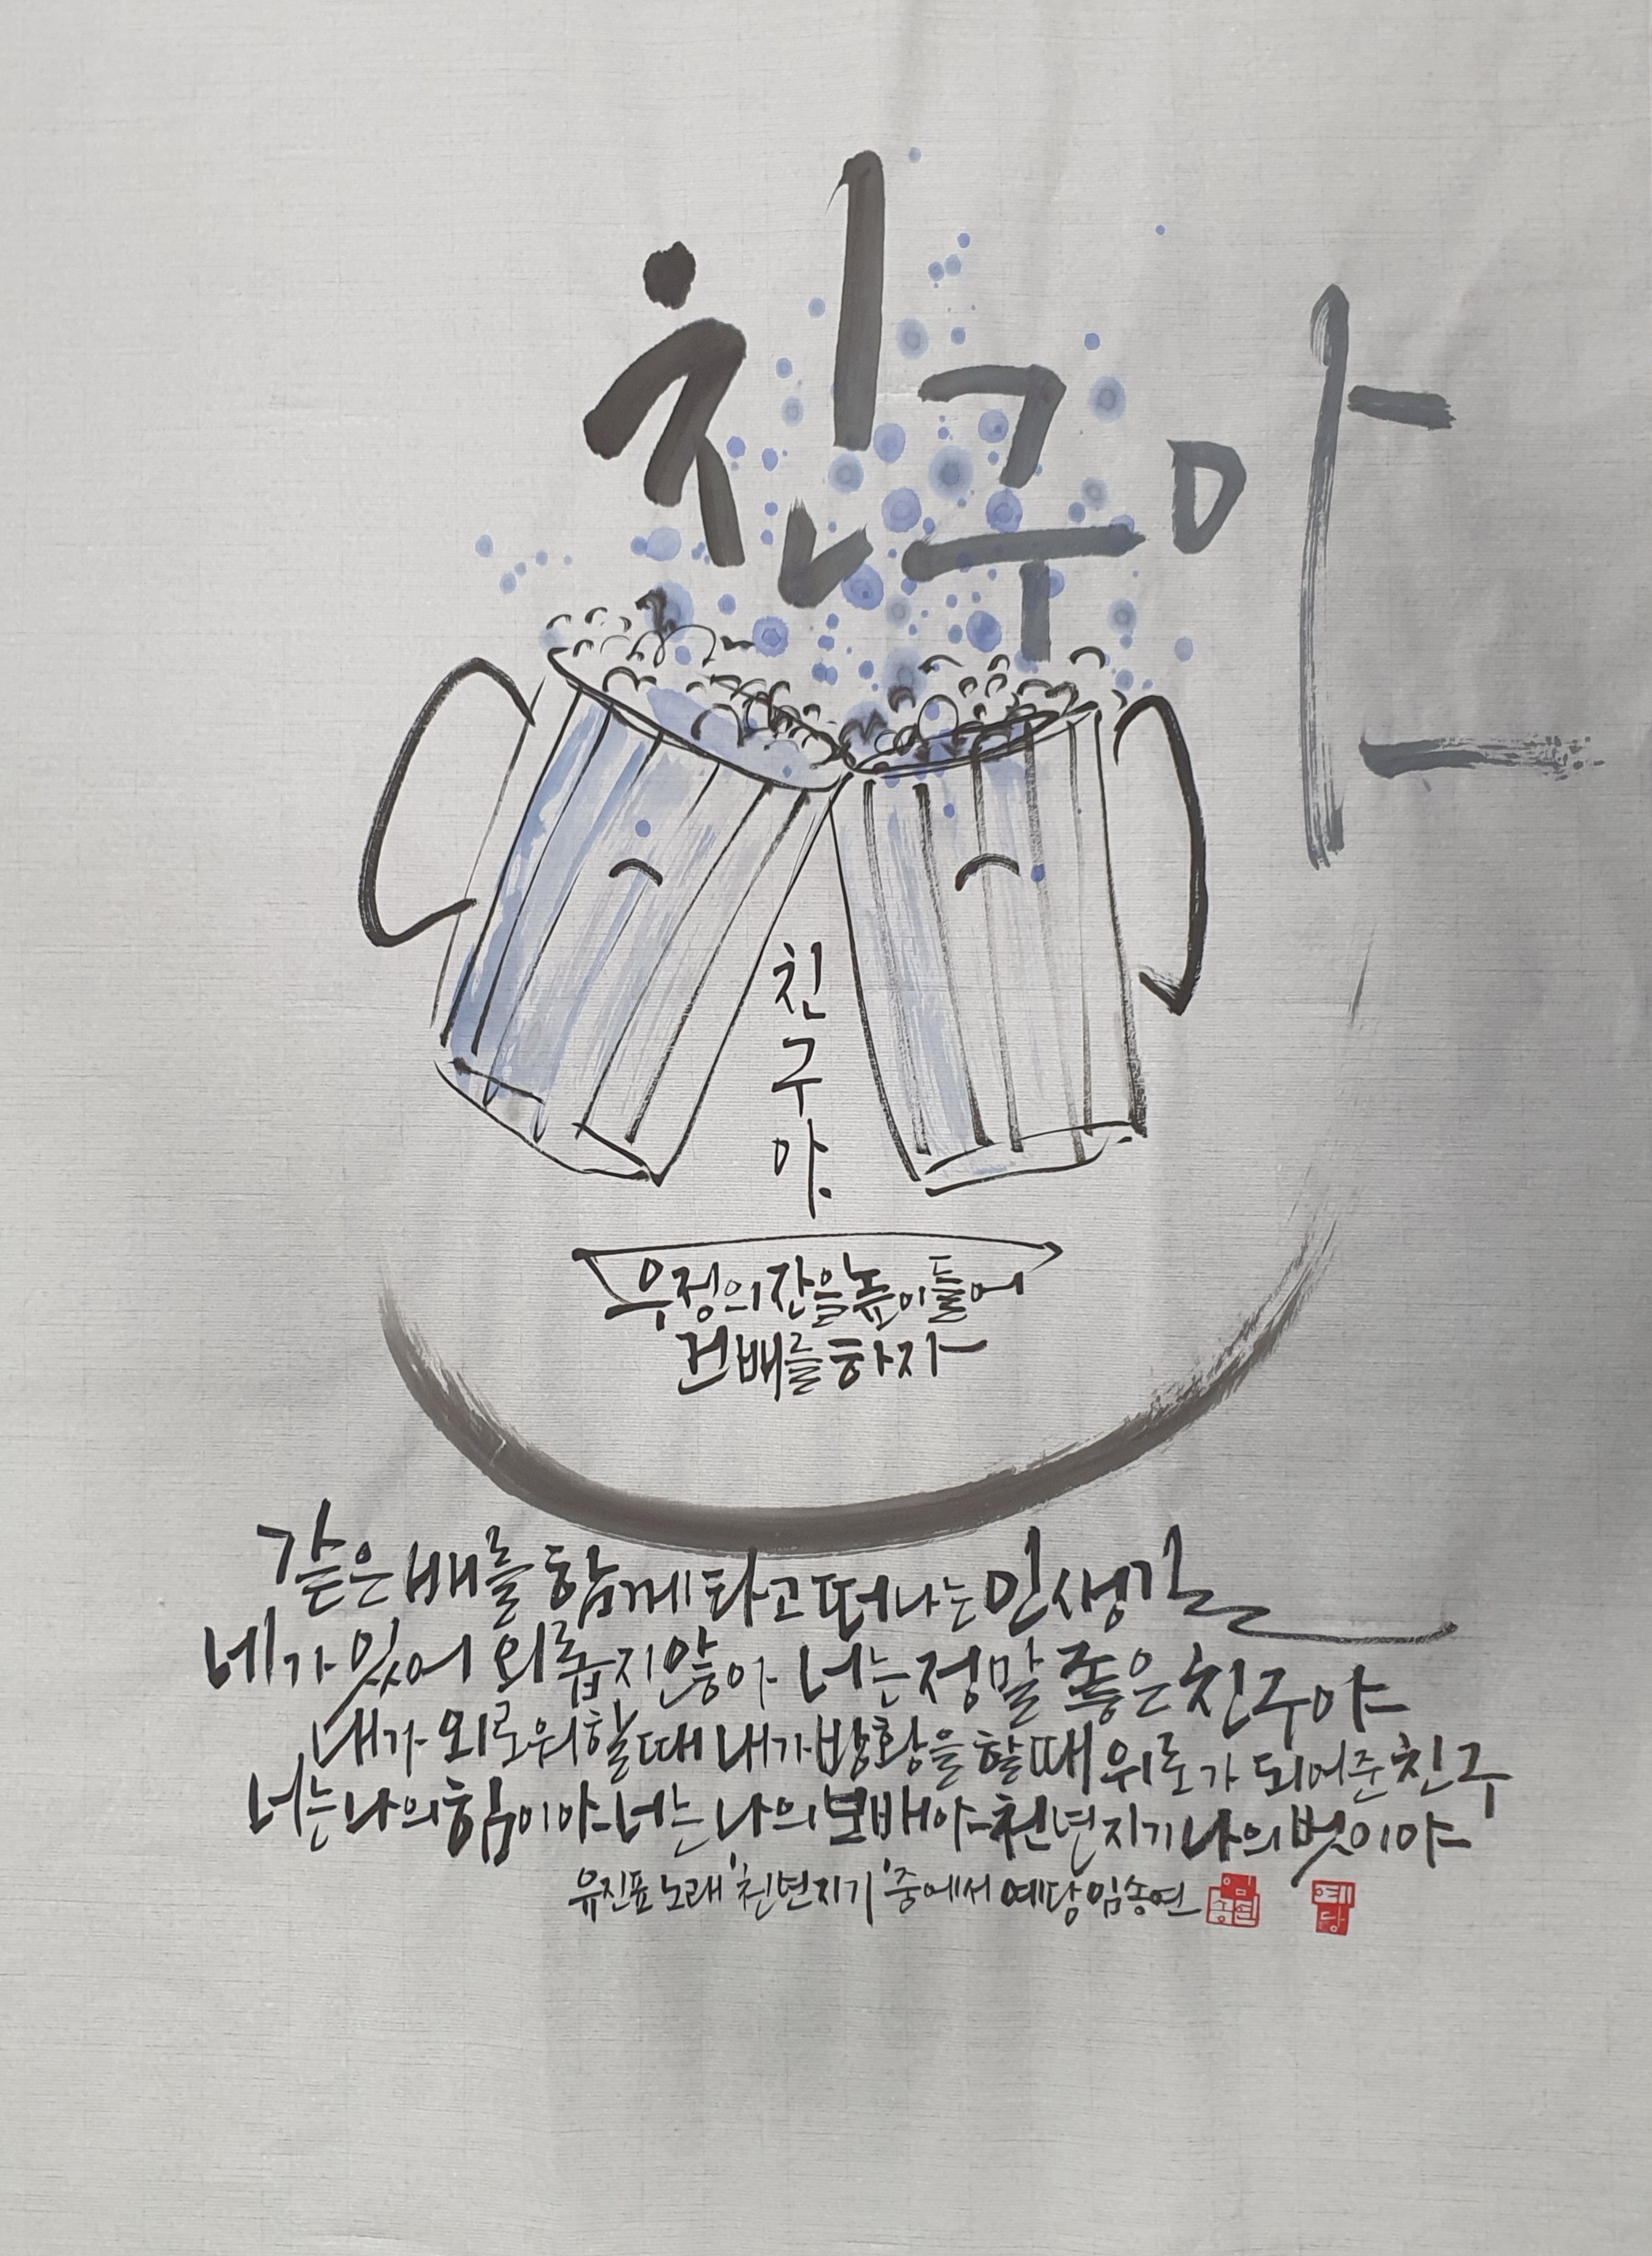 친구야
친
구
야
우정의 잔을 높이 들어
건배를 하자
같은 배를 함께 타고 떠나는 인생길
네가 있어 외롭지 않아 너는 정말 좋은 친구야
내가 외로워할 때 내가 방황을 할 때 위로가 되어준 친구
너는 나의 힘이야 너는 나의 보배야 천년지기 나의 벗이야
유진표 노래 '천년지기' 중에서 예당 임송연
임송연
예당